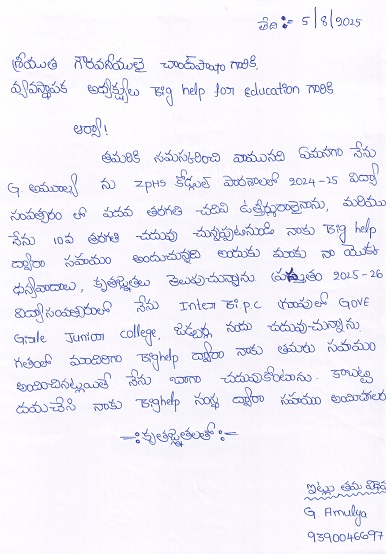 తేది :- 5/8/2025
శ్రీయుత గౌరవనీయులై చాంద్‌పాషా గారికి,
వ్యవస్థాపక అధ్యక్షులు Big help for education గారికి
ఆర్యా!
తమరికి నమస్కరించి వ్రాయునది ఏమనగా నేను
G. అమూల్య ను ZPHS పాఠశాలలో 2024-25 విద్యా
సంవత్సరం లో పదవ తరగతి చదివి ఉత్తీర్ణురాలైనాను, మరియు
నేను 10వ తరగతి చదువు చున్నప్పటినుండి నాకు Big help
ద్వారా సహాయం అందుచున్నది అందుకు మీకు నా యొక్క
ధన్యవాదాలు, కృతజ్ఞతలు తెలుపుచున్నాను ప్రస్తుతం 2025-26
విద్యాసంవత్సరంలో నేను Inter Bi.p.c గ్రూపులో GOVE
Grale Junior college, నందు చదువుచున్నాను.
గతంలో మాదిరిగా Bighelp ద్వారా నాకు తమరు సహాయం
అందించినట్లయితే నేను బాగా చదువుకోగలను. కాబట్టి
దయచేసి నాకు Bighelp సంస్థ ద్వారా సహాయం అందించగలరు
-: కృతజ్ఞతలతో :-
ఇట్లు తమ విధేయ
G Amulya
9390046697